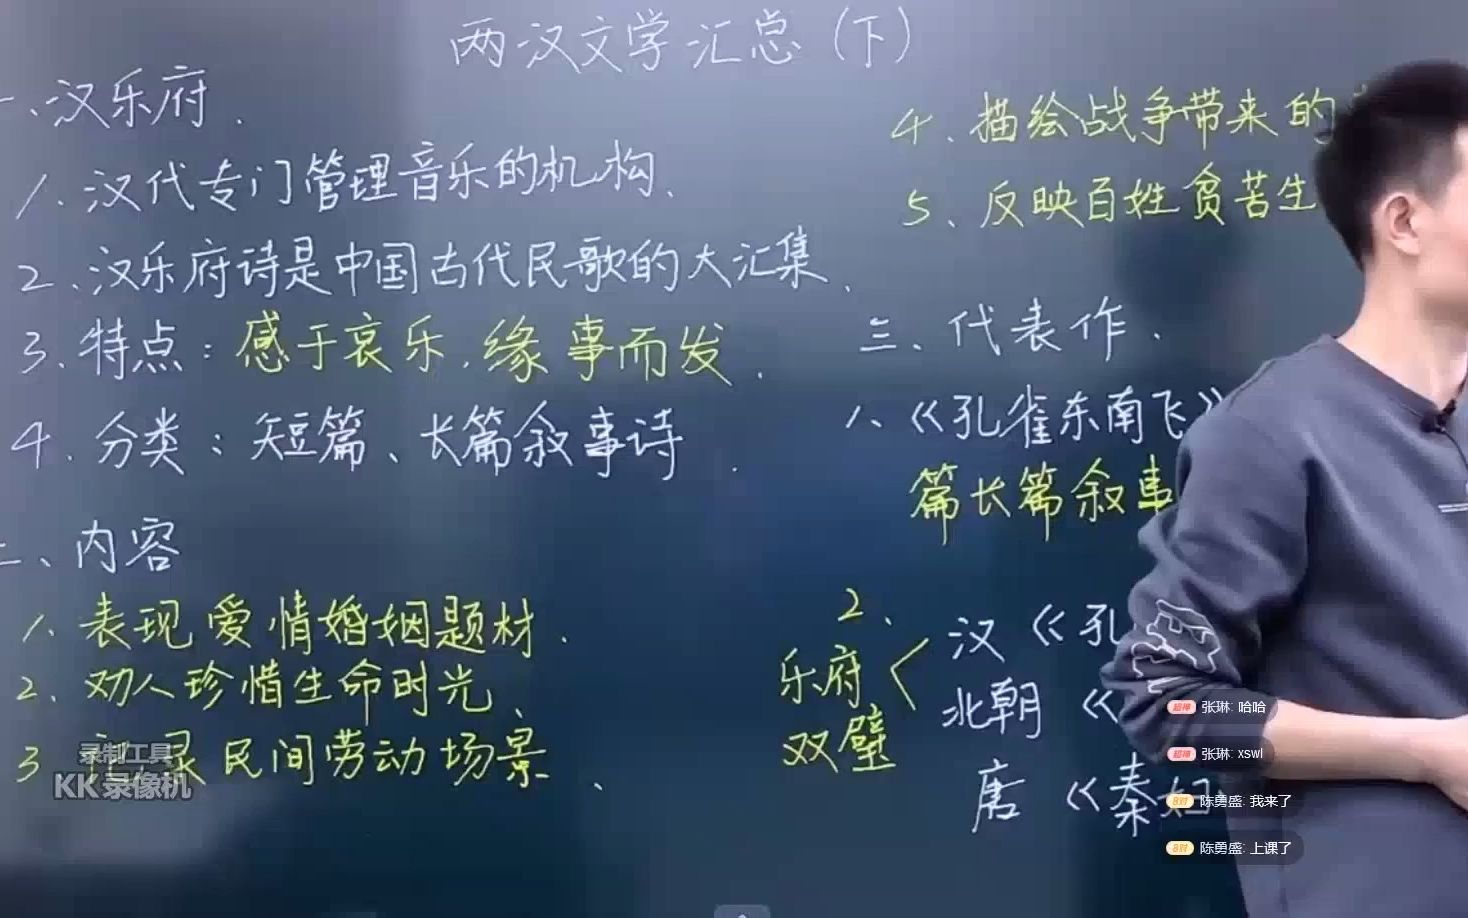 两汉文学汇总（下）
一、汉乐府.
1、汉代专门管理音乐的机构、
2、汉乐府诗是中国古代民歌的大汇集、
3、特点：感于哀乐，缘事而发.
4、分类：短篇、长篇叙事诗.
二、内容
1、表现爱情婚姻题材.
2、劝人珍惜生命时光、
3 记录民间劳动场景、
4、描绘战争带来的
5、反映百姓贫苦生
三、代表作.
1、《孔雀东南飞》
篇长篇叙事
2、
乐府双璧
汉《孔
北朝《
唐《秦妇
录制工具
KK录像机
超神 张琳: 哈哈
超神 张琳: xswl
8对 陈勇盛: 我来了
8对 陈勇盛: 上课了